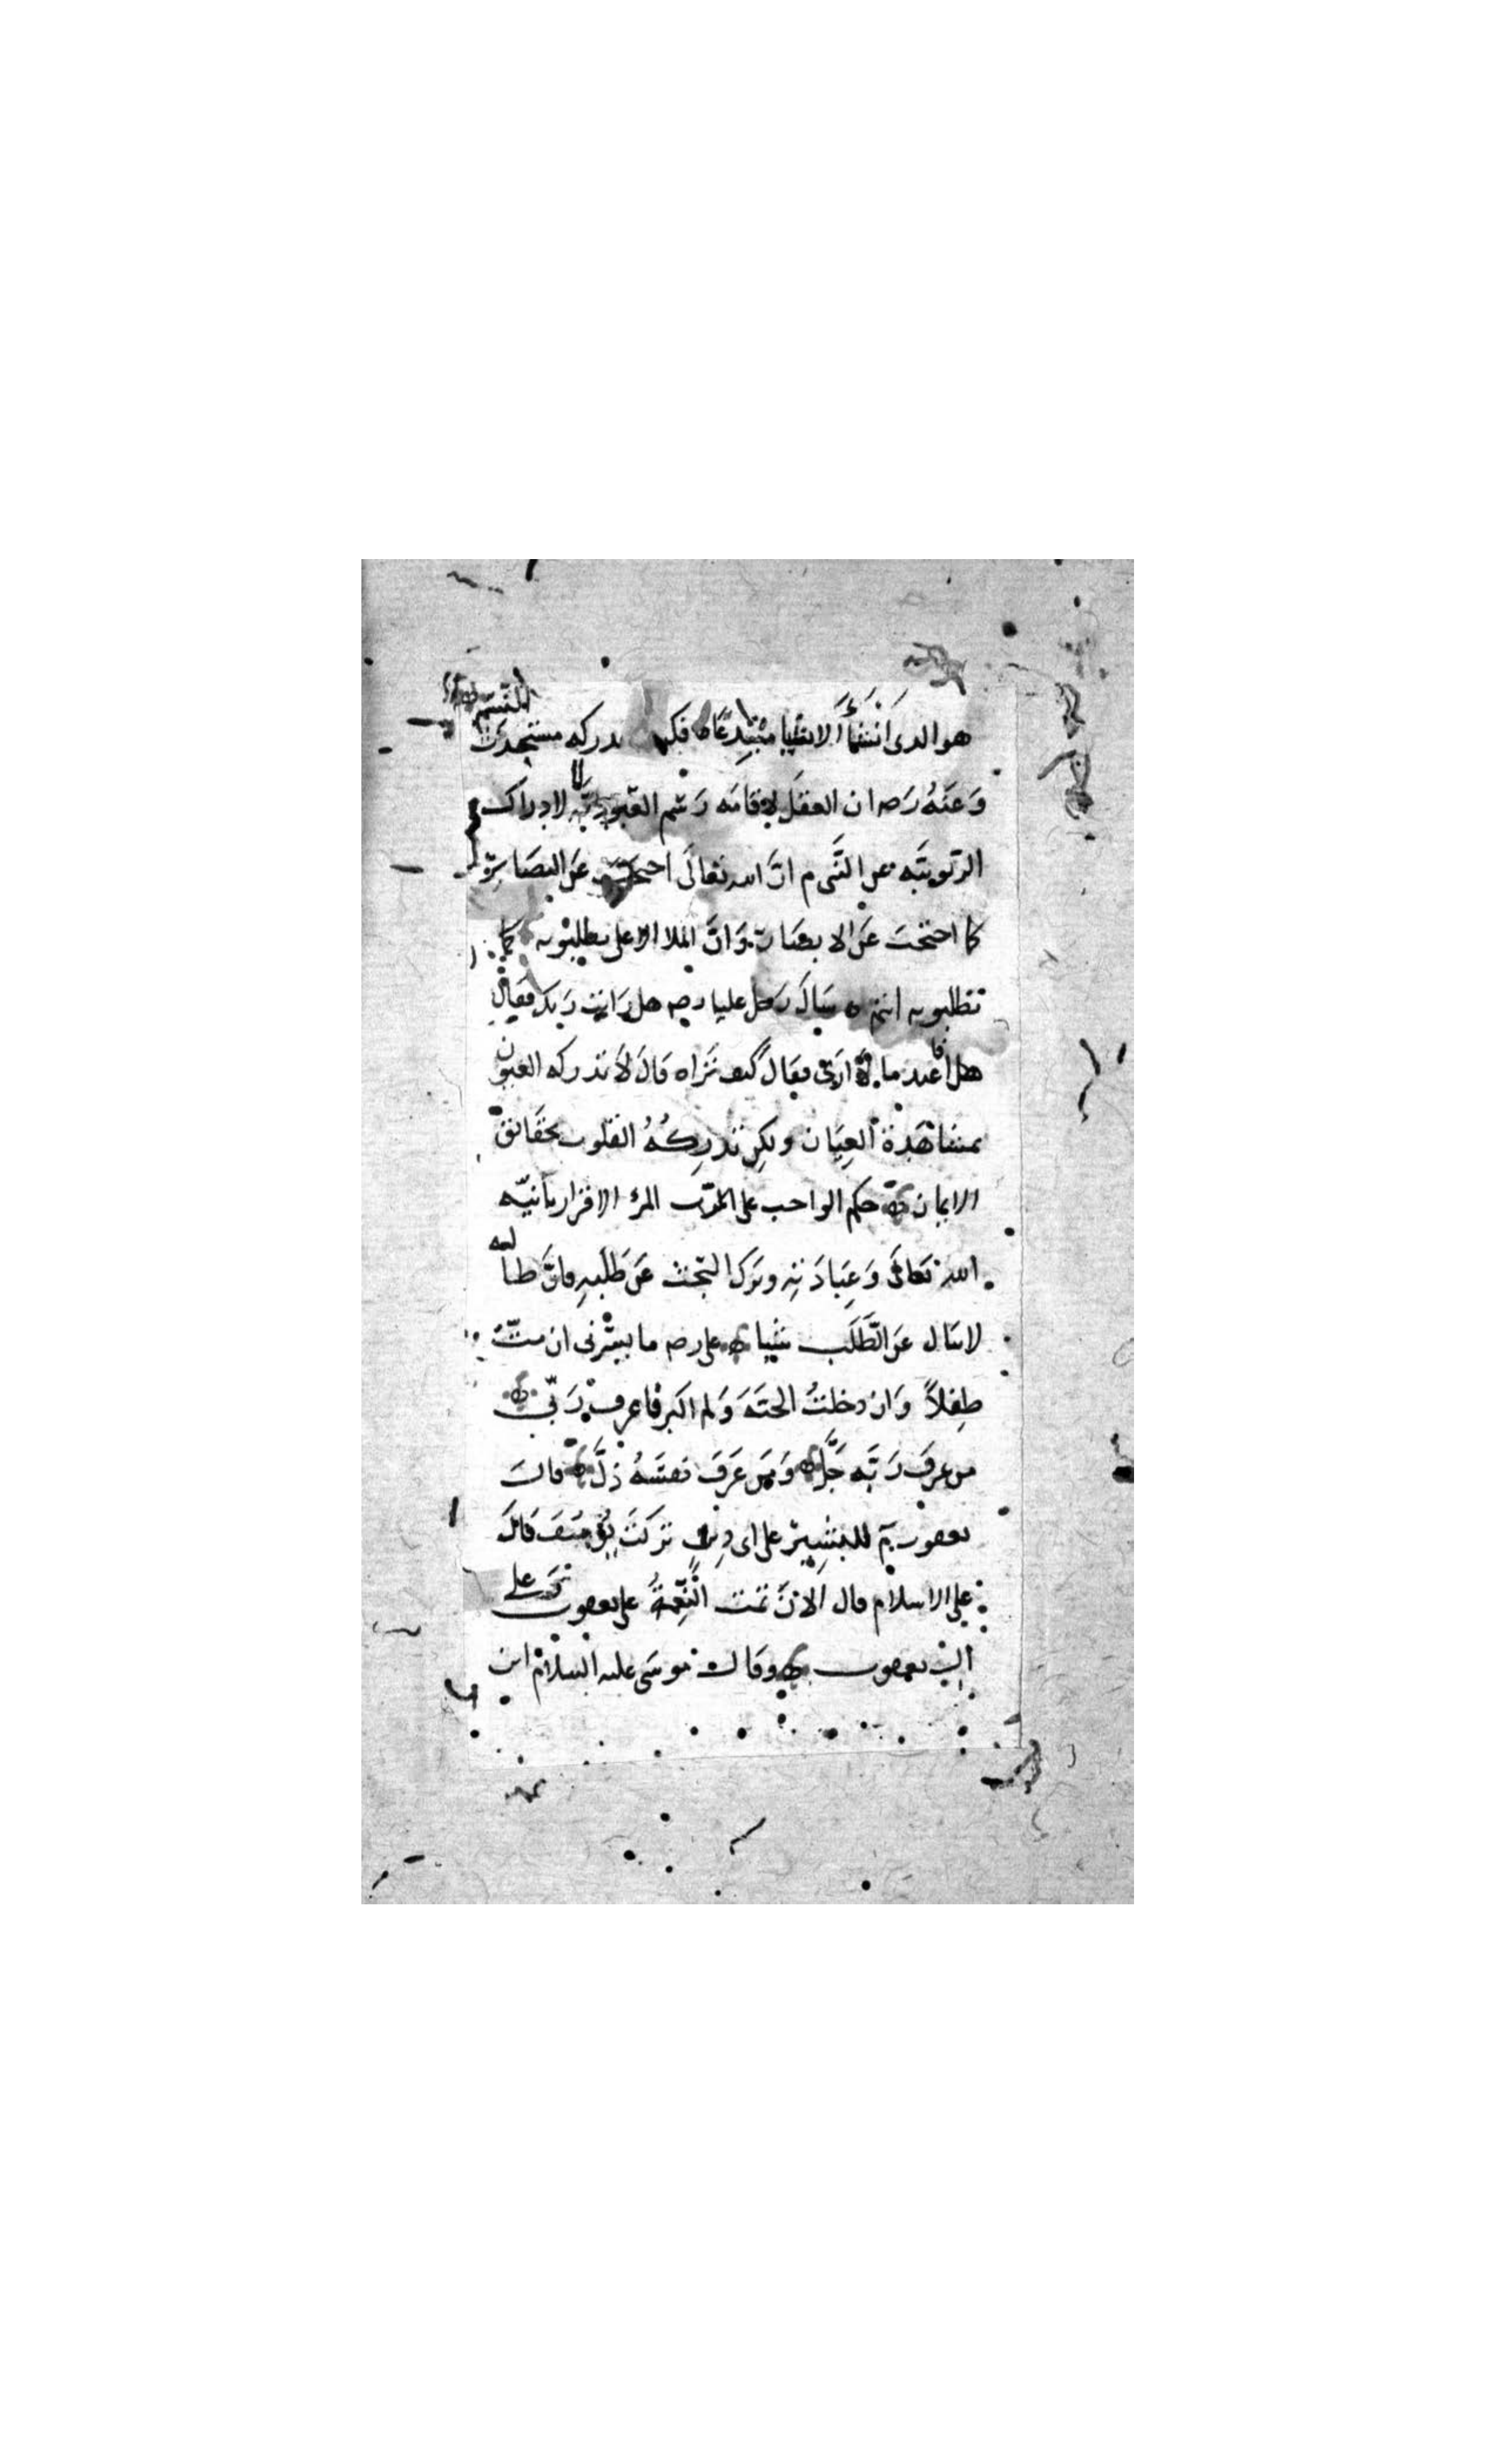 هو الذى أَنْشَأَ الاشيا مُبْتَدِعًا ه فكيف يدركه مستحدث النسم
وَعَنْهُ رَضه ان العقلَ لاقامَه رَسْم العُبوديّه لا لادراك
الرّبوبيّه عن النَّبى م انّ الله تعالَى احتجب عَن البصَائِر
كما احتجبَ عَن الابصَار وَانّ الملا الاعلى يطلبونه كما
تطلبونه انتم ه سَاَلَ رَجل عليا رضه هل رَايت رَبك فقال
افاعبد ما لا ارَى فقالَ كيف تَرَاه قالَ لَا تدركه العيون
بمشاهَدة العِيَان ولكِن تدرِكُهُ القلوب بحقَائق
الايمان ه حكيم الواجب على المرء الاقرار بانيّه
الله تعَالَى وَعِبَادَتِهِ وترك البَحث عَن طَلَبِهِ فانَّ طالبه
لا ينال عَن الطَّلَب شيئا ه على رضه ما يسُرّنى ان متّ
طِفلاً وَان دخلتُ الجنّهَ وَلم اكبر فاعرف رَبّى ه
من عرفَ رَبَّه جَلَّ ه وَمَن عَرَفَ نفسَهُ ذلَّ ه قالَ
يعقوب م للبَشِيْر على اى دِينٍ تركتَ يُوسُفَ قالَ
على الاسلام قال الانَ تمت النِّعْمَةُ على يعقوب وعلى
الِ يعقوب ه وقال موسَى عليه السلام اين